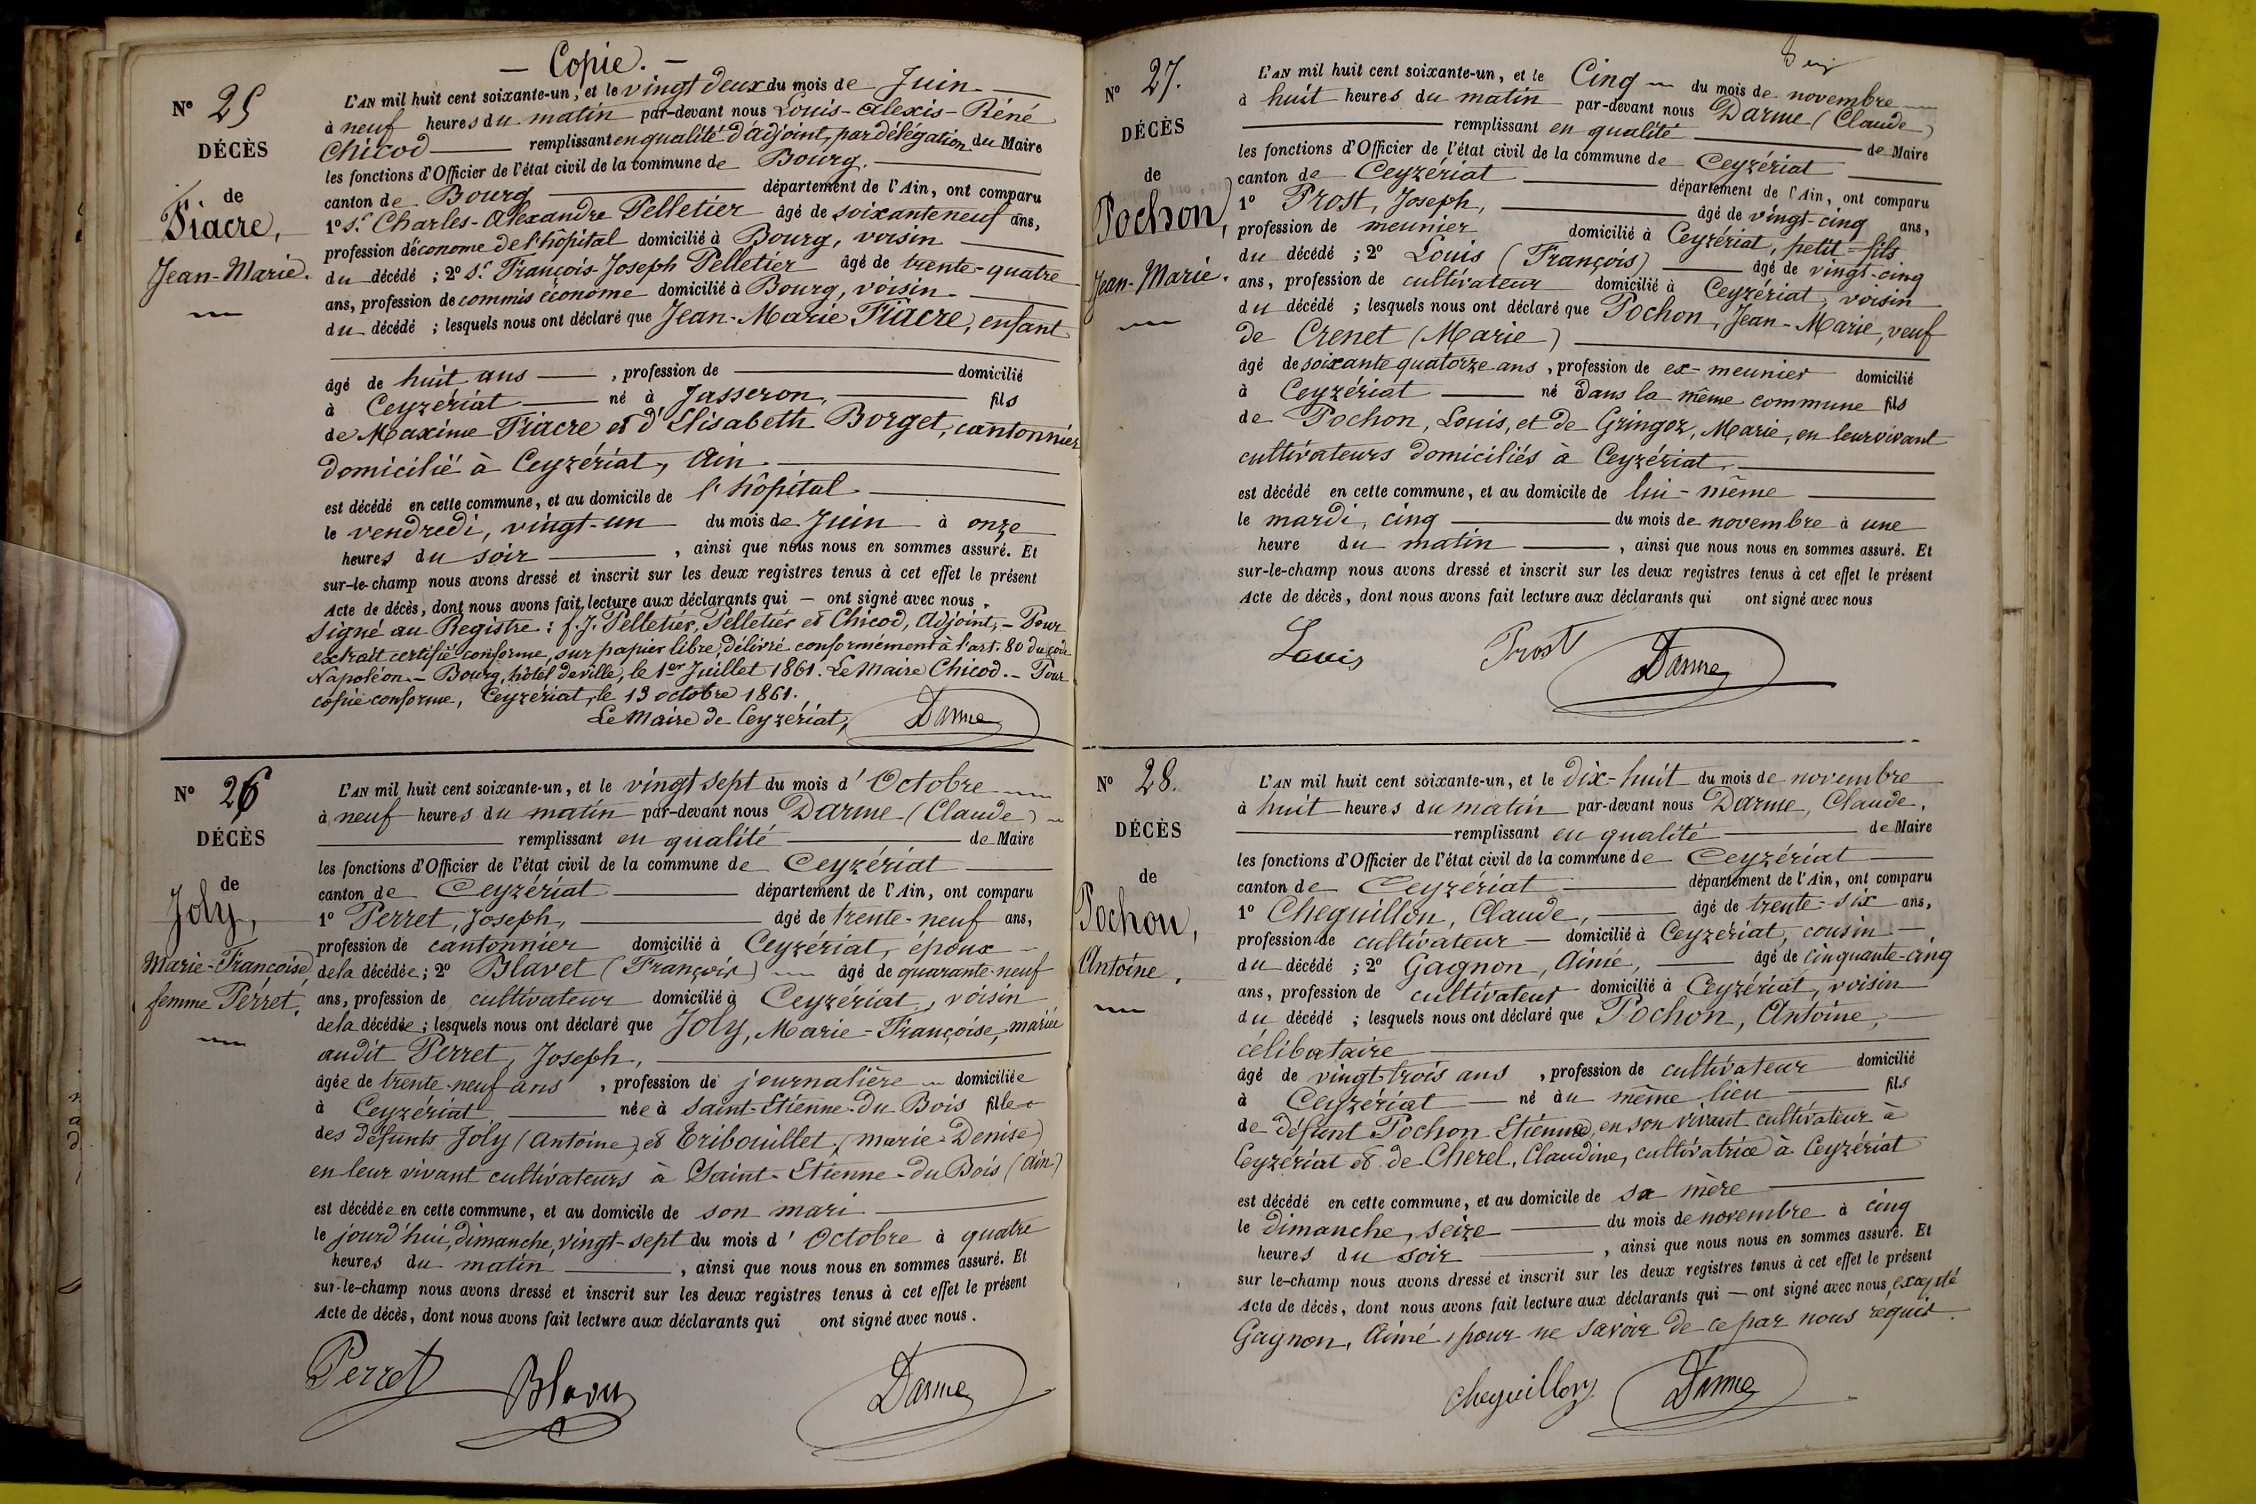 — Copie. —
Nº 25
DÉCÈS
de
Fiacre,
Jean-Marie.
L'AN mil huit cent soixante-un, et le vingt deux du mois de Juin
à neuf heures du matin par-devant nous Louis-Alexis-Réné
Chicod remplissant en qualité d'adjoint, par délégation du Maire
les fonctions d'Officier de l'état civil de la commune de Bourg.
canton de Bourg département de l'Ain, ont comparu
1º Sr Charles-Alexandre Pelletier âgé de soixante neuf ans,
profession d'économe de l'hôpital domicilié à Bourg, voisin
du décédé ; 2º Sr François-Joseph Pelletier âgé de trente-quatre
ans, profession de commis économe domicilié à Bourg, voisin
du décédé ; lesquels nous ont déclaré que Jean-Marie Fiacre, enfant
âgé de huit ans , profession de domicilié
à Ceyzériat né à Jasseron, fils
de Maxime Fiacre et d'Elisabeth Borget, cantonnier
domicilié à Ceyzériat, Ain.
est décédé en cette commune, et au domicile de l'hôpital
le vendredi, vingt-un du mois de Juin à onze
heures du soir , ainsi que nous nous en sommes assuré. Et
sur-le-champ nous avons dressé et inscrit sur les deux registres tenus à cet effet le présent
Acte de décès, dont nous avons fait lecture aux déclarants qui — ont signé avec nous.
Signé au Registre : f. J. Pelletier, Pelletier et Chicod, Adjoint, — Pour
extrait certifié conforme, sur papier libre, délivré conformément à l'art. 80 du code
Napoléon. — Bourg, hôtel de ville, le 1er Juillet 1861. Le Maire Chicod. — Pour
copie conforme, Ceyzériat, le 13 octobre 1861.
Le Maire de Ceyzériat, Darme
Nº 26
DÉCÈS
de
Joly,
Marie-Françoise
femme Perret.
L'AN mil huit cent soixante-un, et le vingt sept du mois d'Octobre
à neuf heures du matin par-devant nous Darme (Claude)
remplissant en qualité de Maire
les fonctions d'Officier de l'état civil de la commune de Ceyzériat
canton de Ceyzériat département de l'Ain, ont comparu
1º Perret, Joseph, âgé de trente-neuf ans,
profession de cantonnier domicilié à Ceyzériat, époux
de la décédée ; 2º Blavet (François) âgé de quarante-neuf
ans, profession de cultivateur domicilié à Ceyzériat, voisin
de la décédée ; lesquels nous ont déclaré que Joly, Marie-Françoise, mariée
audit Perret, Joseph,
âgée de trente-neuf ans , profession de journalière domiciliée
à Ceyzériat née à Saint-Etienne-du Bois fille
des défunts Joly (Antoine) et Tribouillet, (Marie-Denise)
en leur vivant cultivateurs à Saint-Etienne-du Bois (Ain)
est décédée en cette commune, et au domicile de son mari
le jourd'hui, dimanche, vingt-sept du mois d'Octobre à quatre
heures du matin , ainsi que nous nous en sommes assuré. Et
sur-le-champ nous avons dressé et inscrit sur les deux registres tenus à cet effet le présent
Acte de décès, dont nous avons fait lecture aux déclarants qui ont signé avec nous.
Perret Blavet Darme
Nº 27.
DÉCÈS
de
Pochon,
Jean-Marie.
L'AN mil huit cent soixante-un, et le Cinq du mois de novembre
à huit heures du matin par-devant nous Darme (Claude)
remplissant en qualité de Maire
les fonctions d'Officier de l'état civil de la commune de Ceyzériat
canton de Ceyzériat département de l'Ain, ont comparu
1º Prost, Joseph, âgé de vingt-cinq ans,
profession de meunier domicilié à Ceyzériat, petit-fils
du décédé ; 2º Louis (François) âgé de vingt-cinq
ans, profession de cultivateur domicilié à Ceyzériat, voisin
du décédé ; lesquels nous ont déclaré que Pochon, Jean-Marie, veuf
de Crenet (Marie)
âgé de soixante quatorze ans , profession de ex-meunier domicilié
à Ceyzériat né dans la même commune fils
de Pochon, Louis, et de Gringoz, Marie, en leur vivant
cultivateurs domiciliés à Ceyzériat.
est décédé en cette commune, et au domicile de lui-même
le mardi, cinq du mois de novembre à une
heure du matin , ainsi que nous nous en sommes assuré. Et
sur-le-champ nous avons dressé et inscrit sur les deux registres tenus à cet effet le présent
Acte de décès, dont nous avons fait lecture aux déclarants qui ont signé avec nous
Louis Prost Darme
Nº 28.
DÉCÈS
de
Pochon,
Antoine,
L'AN mil huit cent soixante-un, et le dix-huit du mois de novembre
à huit heures du matin par-devant nous Darme, Claude,
remplissant en qualité de Maire
les fonctions d'Officier de l'état civil de la commune de Ceyzériat
canton de Ceyzériat département de l'Ain, ont comparu
1º Cheguillon, Claude, âgé de trente-six ans,
profession de cultivateur domicilié à Ceyzériat, cousin
du décédé ; 2º Gagnon, Aimé, âgé de cinquante-cinq
ans, profession de cultivateur domicilié à Ceyzériat, voisin
du décédé ; lesquels nous ont déclaré que Pochon, Antoine,
célibataire
âgé de vingt trois ans , profession de cultivateur domicilié
à Ceyzériat né au même lieu fils
de défunt Pochon Etienne, en son vivant cultivateur à
Ceyzériat et de Cherel, Claudine, cultivatrice à Ceyzériat
est décédé en cette commune, et au domicile de sa mère
le dimanche, seize du mois de novembre à cinq
heures du soir , ainsi que nous nous en sommes assuré. Et
sur le-champ nous avons dressé et inscrit sur les deux registres tenus à cet effet le présent
Acte de décès, dont nous avons fait lecture aux déclarants qui — ont signé avec nous, excepté
Gagnon, Aimé, pour ne savoir de ce par nous requis.
Cheguillon Darme